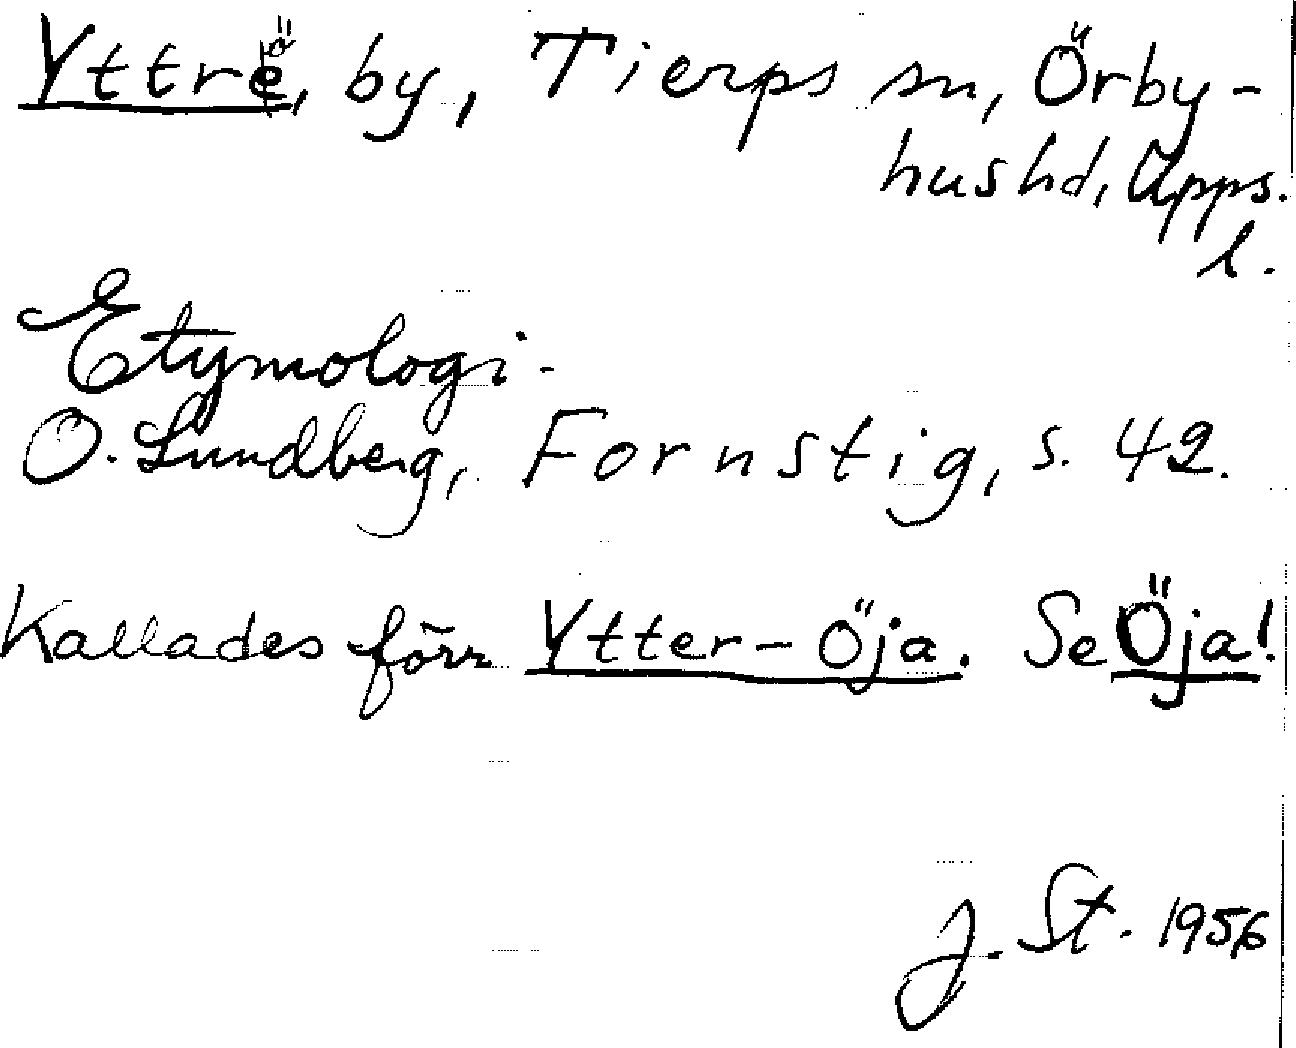 Yttrö, by, Tierps sn, Örby-
hushd, Upps.
l.
Etymologi.
O. Lundberg, Fornstig, s. 42.
Kallades förr Ytter-Öja. Se Öja!
J. St. 1956